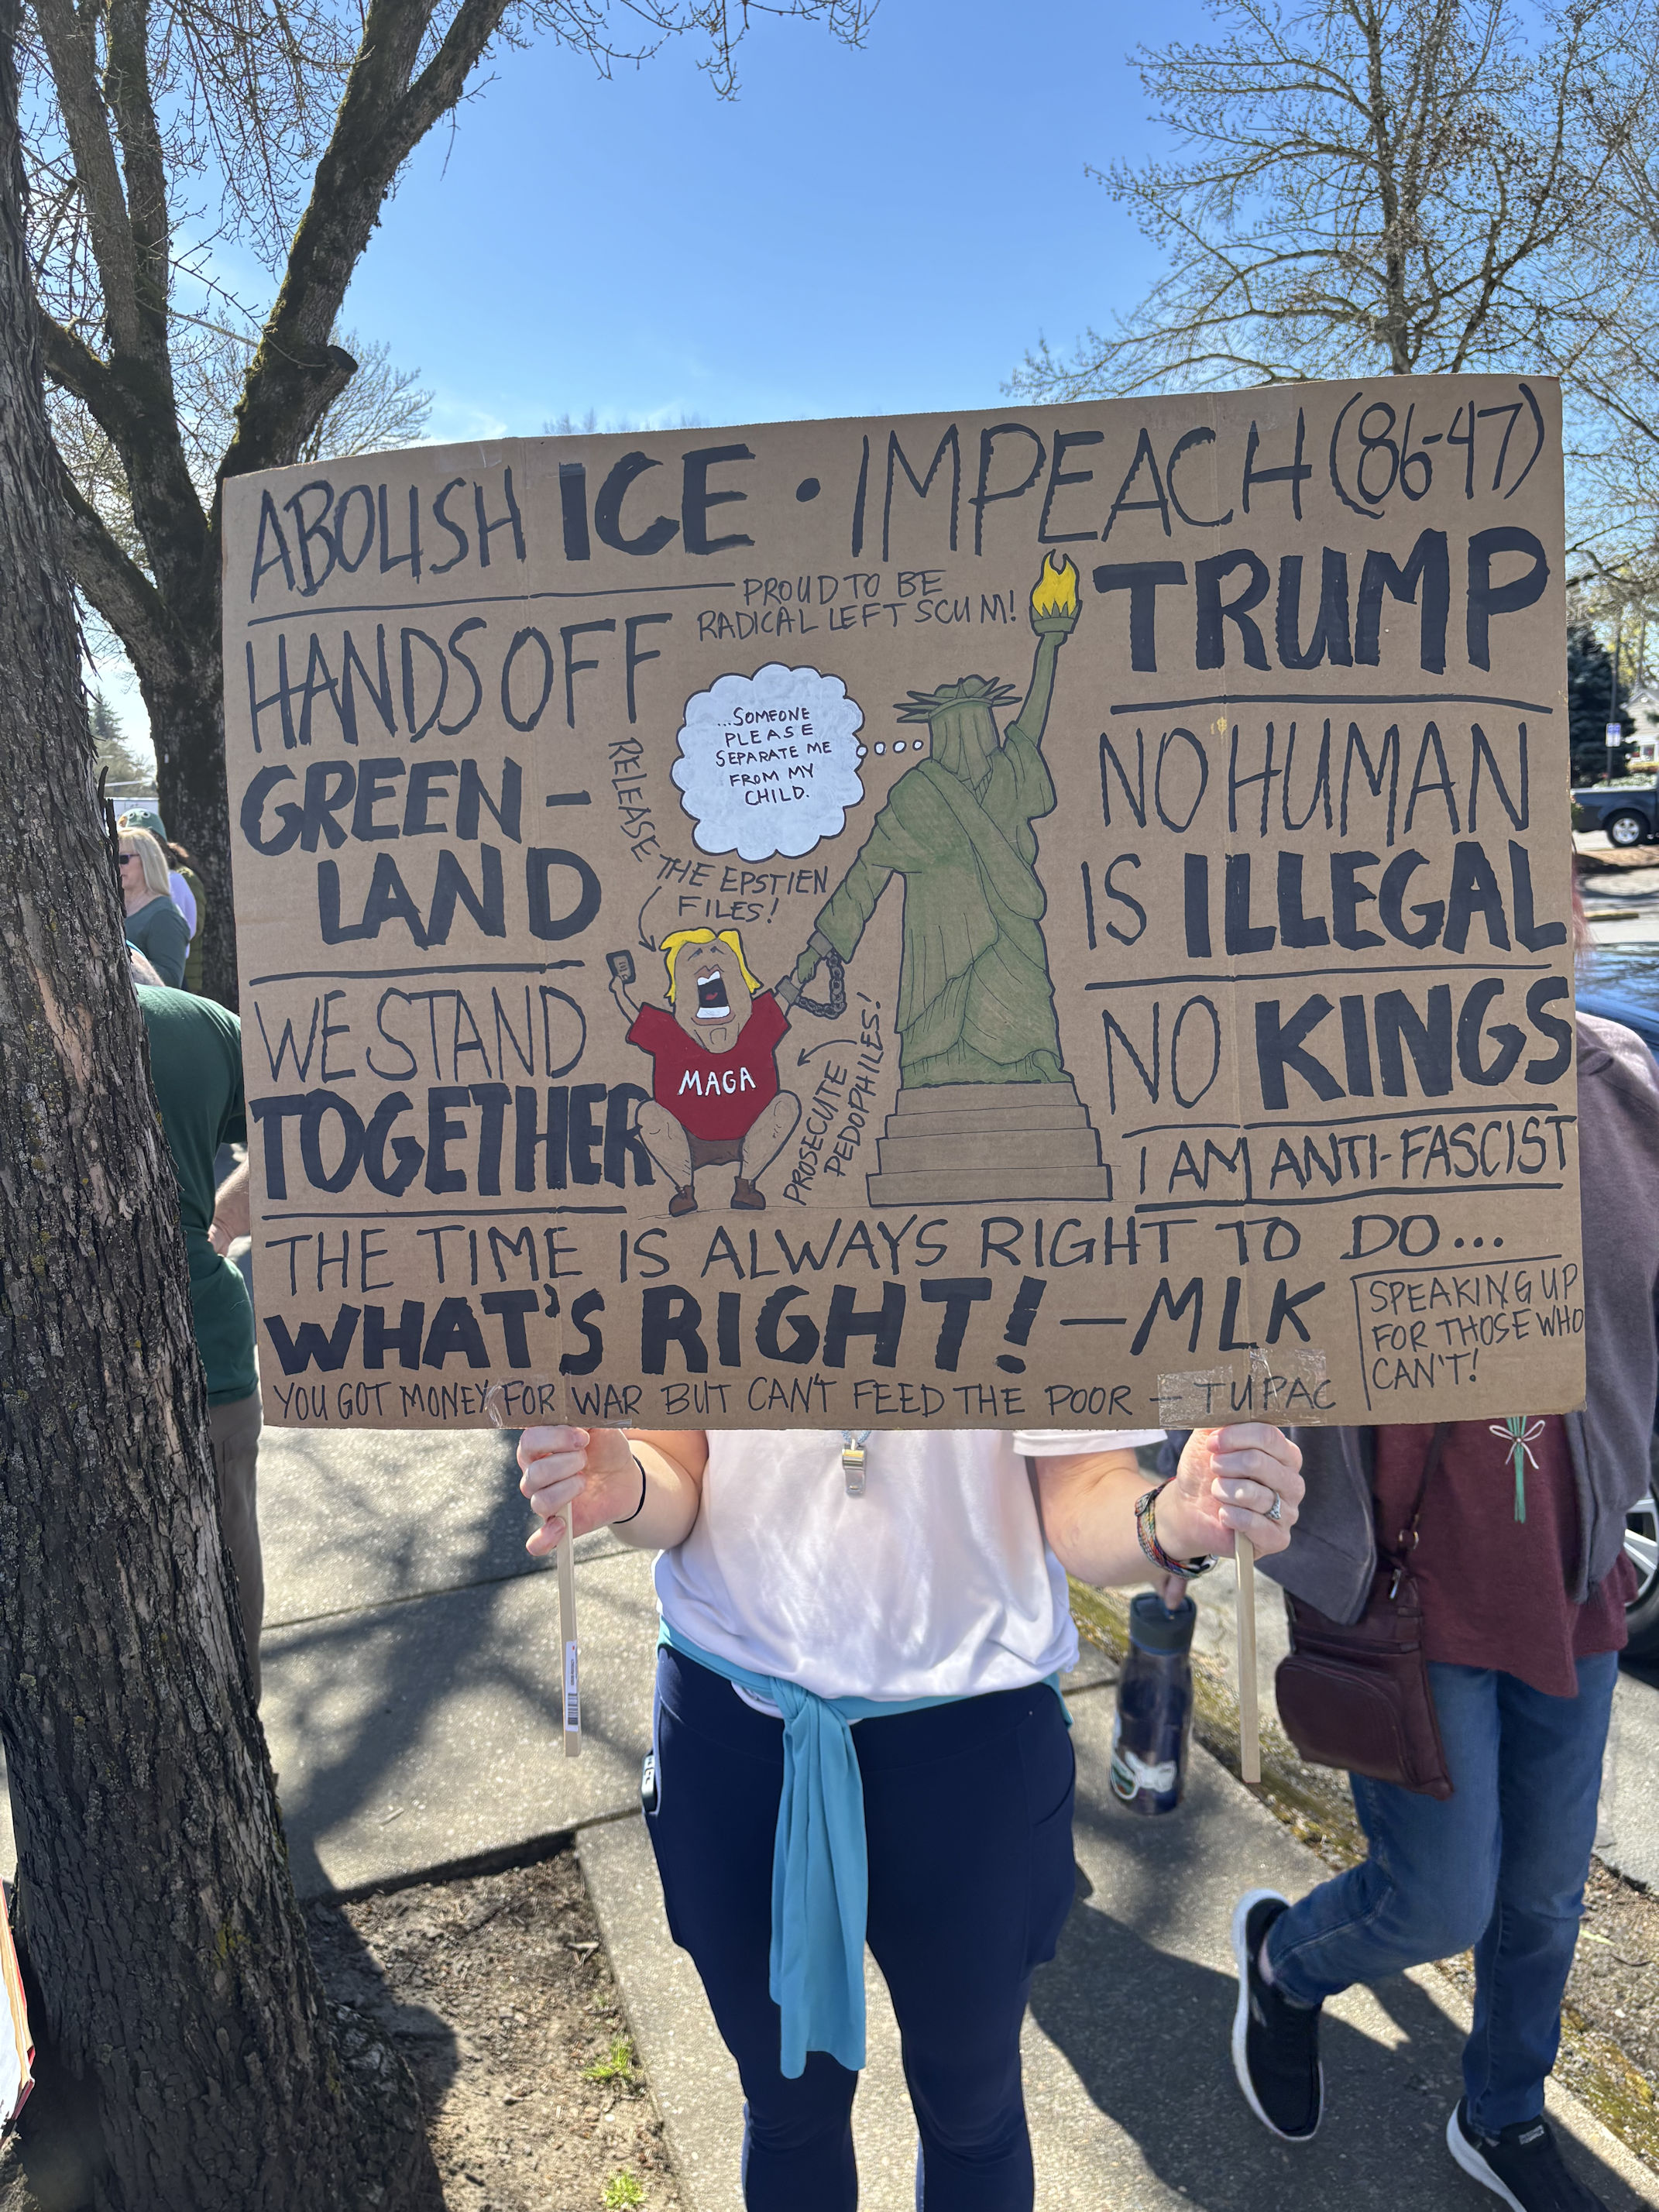 ABOLISH ICE • IMPEACH (86-47)
TRUMP
PROUD TO BE
RADICAL LEFT SCUM!
HANDS OFF
GREEN-
LAND
...SOMEONE
PLEASE
SEPARATE ME
FROM MY
CHILD.
RELEASE
THE EPSTIEN
FILES!
NO HUMAN
IS ILLEGAL
WE STAND
TOGETHER
MAGA
PROSECUTE
PEDOPHILES!
NO KINGS
I AM ANTI-FASCIST
THE TIME IS ALWAYS RIGHT TO DO...
WHAT'S RIGHT! -MLK
SPEAKING UP
FOR THOSE WHO
CAN'T!
YOU GOT MONEY FOR WAR BUT CAN'T FEED THE POOR - TUPAC